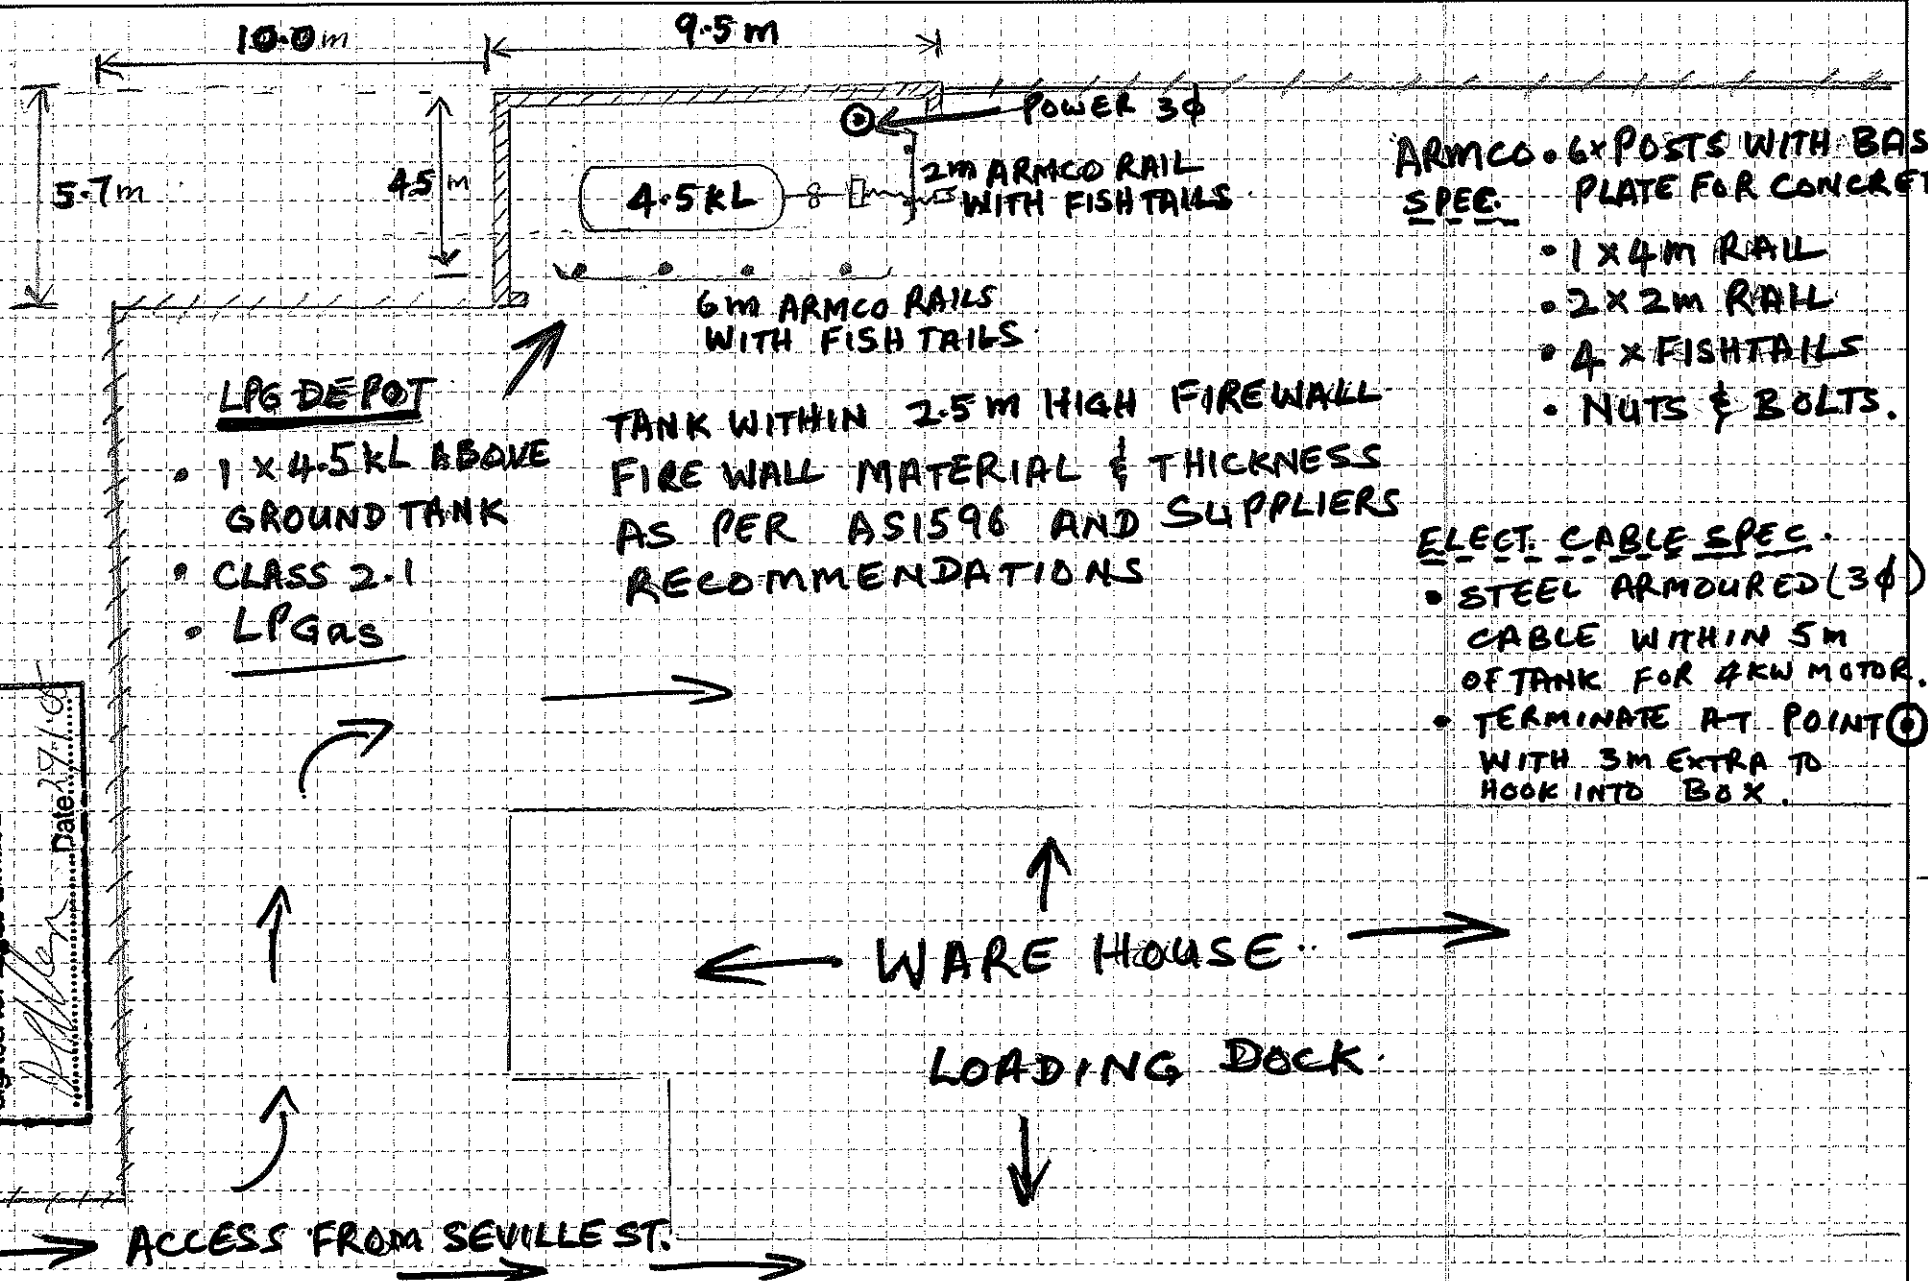 10.0m
9.5m
POWER 3φ
5.7m
4.5m
4.5kL
2m ARMCO RAIL
WITH FISHTAILS.
6m ARMCO RAILS
WITH FISH TAILS.
ARMCO SPEC.
• 6x POSTS WITH BAS
PLATE FOR CONCRET
• 1 x 4m RAIL
• 2 x 2m RAIL
• 4 x FISHTAILS
• NUTS & BOLTS.
LPG DEPOT
• 1 x 4.5kL ABOVE
GROUND TANK
• CLASS 2.1
• LPGas
TANK WITHIN 2.5m HIGH FIREWALL
FIRE WALL MATERIAL & THICKNESS
AS PER AS1596 AND SUPPLIERS
RECOMMENDATIONS
ELECT. CABLE SPEC.
• STEEL ARMOURED (3φ)
CABLE WITHIN 5m
OF TANK FOR 4KW MOTOR.
• TERMINATE AT POINT
WITH 3m EXTRA TO
HOOK INTO BOX.
Date
WARE HOUSE
LOADING DOCK.
ACCESS FROM SEVILLE ST.